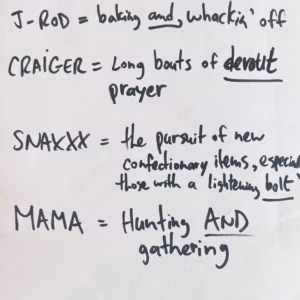 J-ROD = baking and, whackin' off
CRAIGER = Long bouts of devout
prayer
SNAKXX = the pursuit of new
confectionary items, especia
those with a lightening bolt
MAMA = Hunting AND
gathering